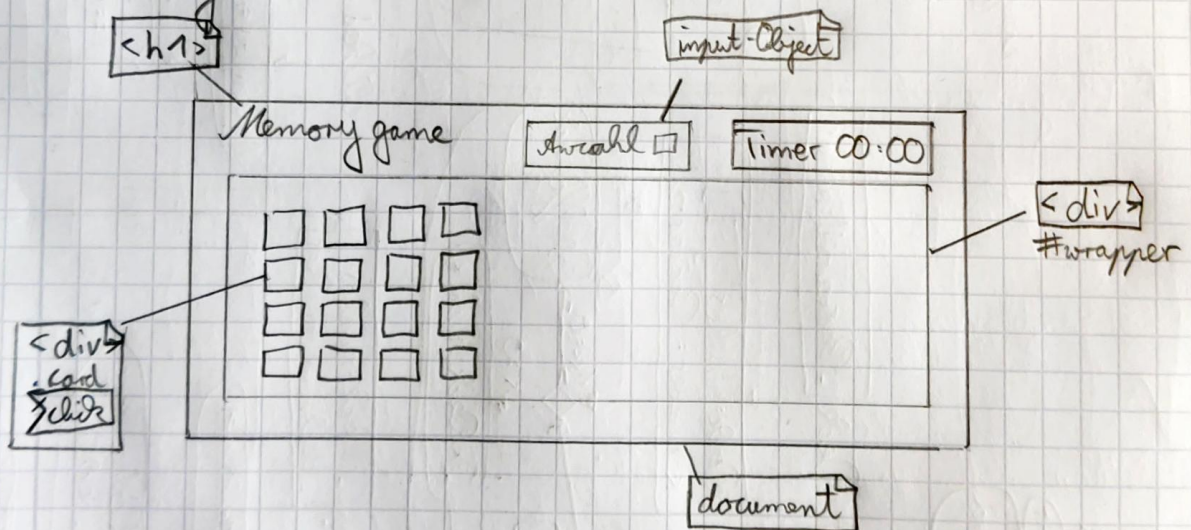 <h1>
input-Object
Memory game
Anzahl
Timer 00:00
<div>
#wrapper
<div>
.card
click
document